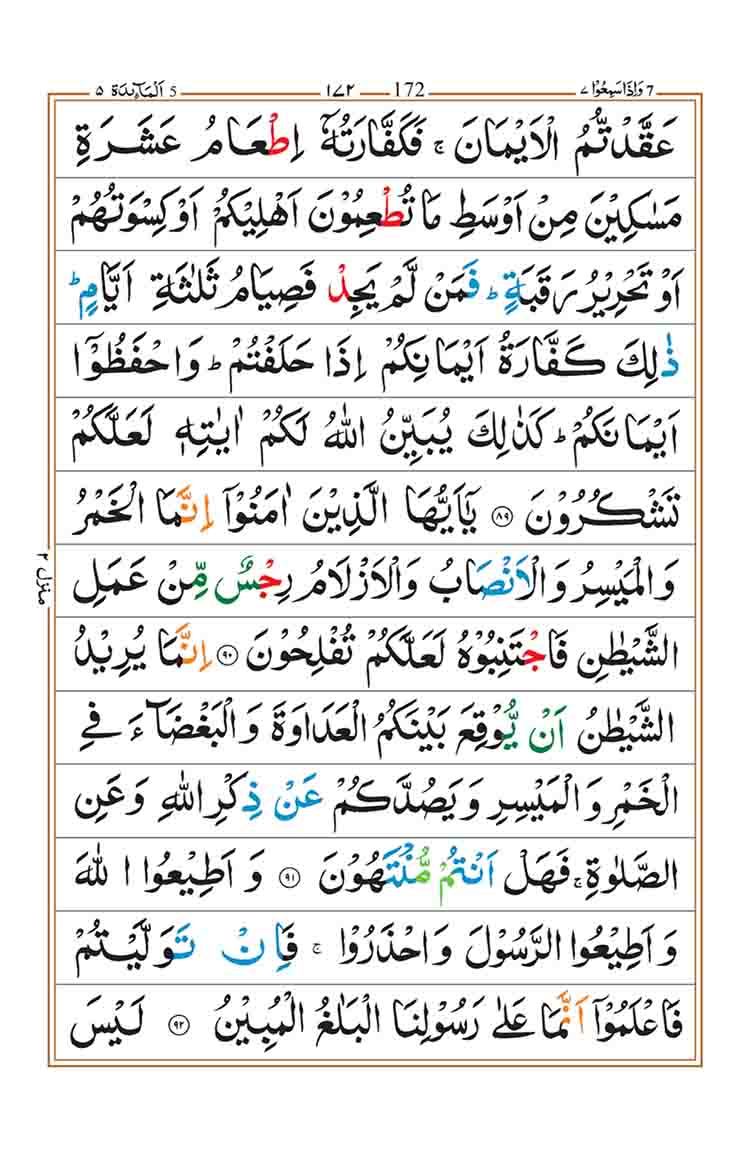 5 اَلْمَآئِدَة ۵ ١٧٢ 172 7 وَاِذَا سَمِعُوْا ٧
عَقَّدْتُّمُ الْاَيْمَانَ ۚ فَكَفَّارَتُهٗۤ اِطْعَامُ عَشَرَةِ
مَسٰكِيْنَ مِنْ اَوْسَطِ مَا تُطْعِمُوْنَ اَهْلِيْكُمْ اَوْ كِسْوَتُهُمْ
اَوْ تَحْرِيْرُ رَقَبَةٍ ؕ فَمَنْ لَّمْ يَجِدْ فَصِيَامُ ثَلٰثَةِ اَيَّامٍ ؕ
ذٰلِكَ كَفَّارَةُ اَيْمَانِكُمْ اِذَا حَلَفْتُمْ ؕ وَاحْفَظُوْۤا
اَيْمَانَكُمْ ؕ كَذٰلِكَ يُبَيِّنُ اللّٰهُ لَكُمْ اٰيٰتِهٖ لَعَلَّكُمْ
تَشْكُرُوْنَ ۸۹ يٰۤاَيُّهَا الَّذِيْنَ اٰمَنُوْۤا اِنَّمَا الْخَمْرُ
وَالْمَيْسِرُ وَالْاَنْصَابُ وَالْاَزْلَامُ رِجْسٌ مِّنْ عَمَلِ
الشَّيْطٰنِ فَاجْتَنِبُوْهُ لَعَلَّكُمْ تُفْلِحُوْنَ ۹۰ اِنَّمَا يُرِيْدُ
الشَّيْطٰنُ اَنْ يُّوْقِعَ بَيْنَكُمُ الْعَدَاوَةَ وَالْبَغْضَآءَ فِي
الْخَمْرِ وَالْمَيْسِرِ وَيَصُدَّكُمْ عَنْ ذِكْرِ اللّٰهِ وَعَنِ
الصَّلٰوةِ ۚ فَهَلْ اَنْتُمْ مُّنْتَهُوْنَ ۹۱ وَاَطِيْعُوا اللّٰهَ
وَاَطِيْعُوا الرَّسُوْلَ وَاحْذَرُوْا ۚ فَاِنْ تَوَلَّيْتُمْ
فَاعْلَمُوْۤا اَنَّمَا عَلٰى رَسُوْلِنَا الْبَلٰغُ الْمُبِيْنُ ۹۲ لَيْسَ
منزل ۲